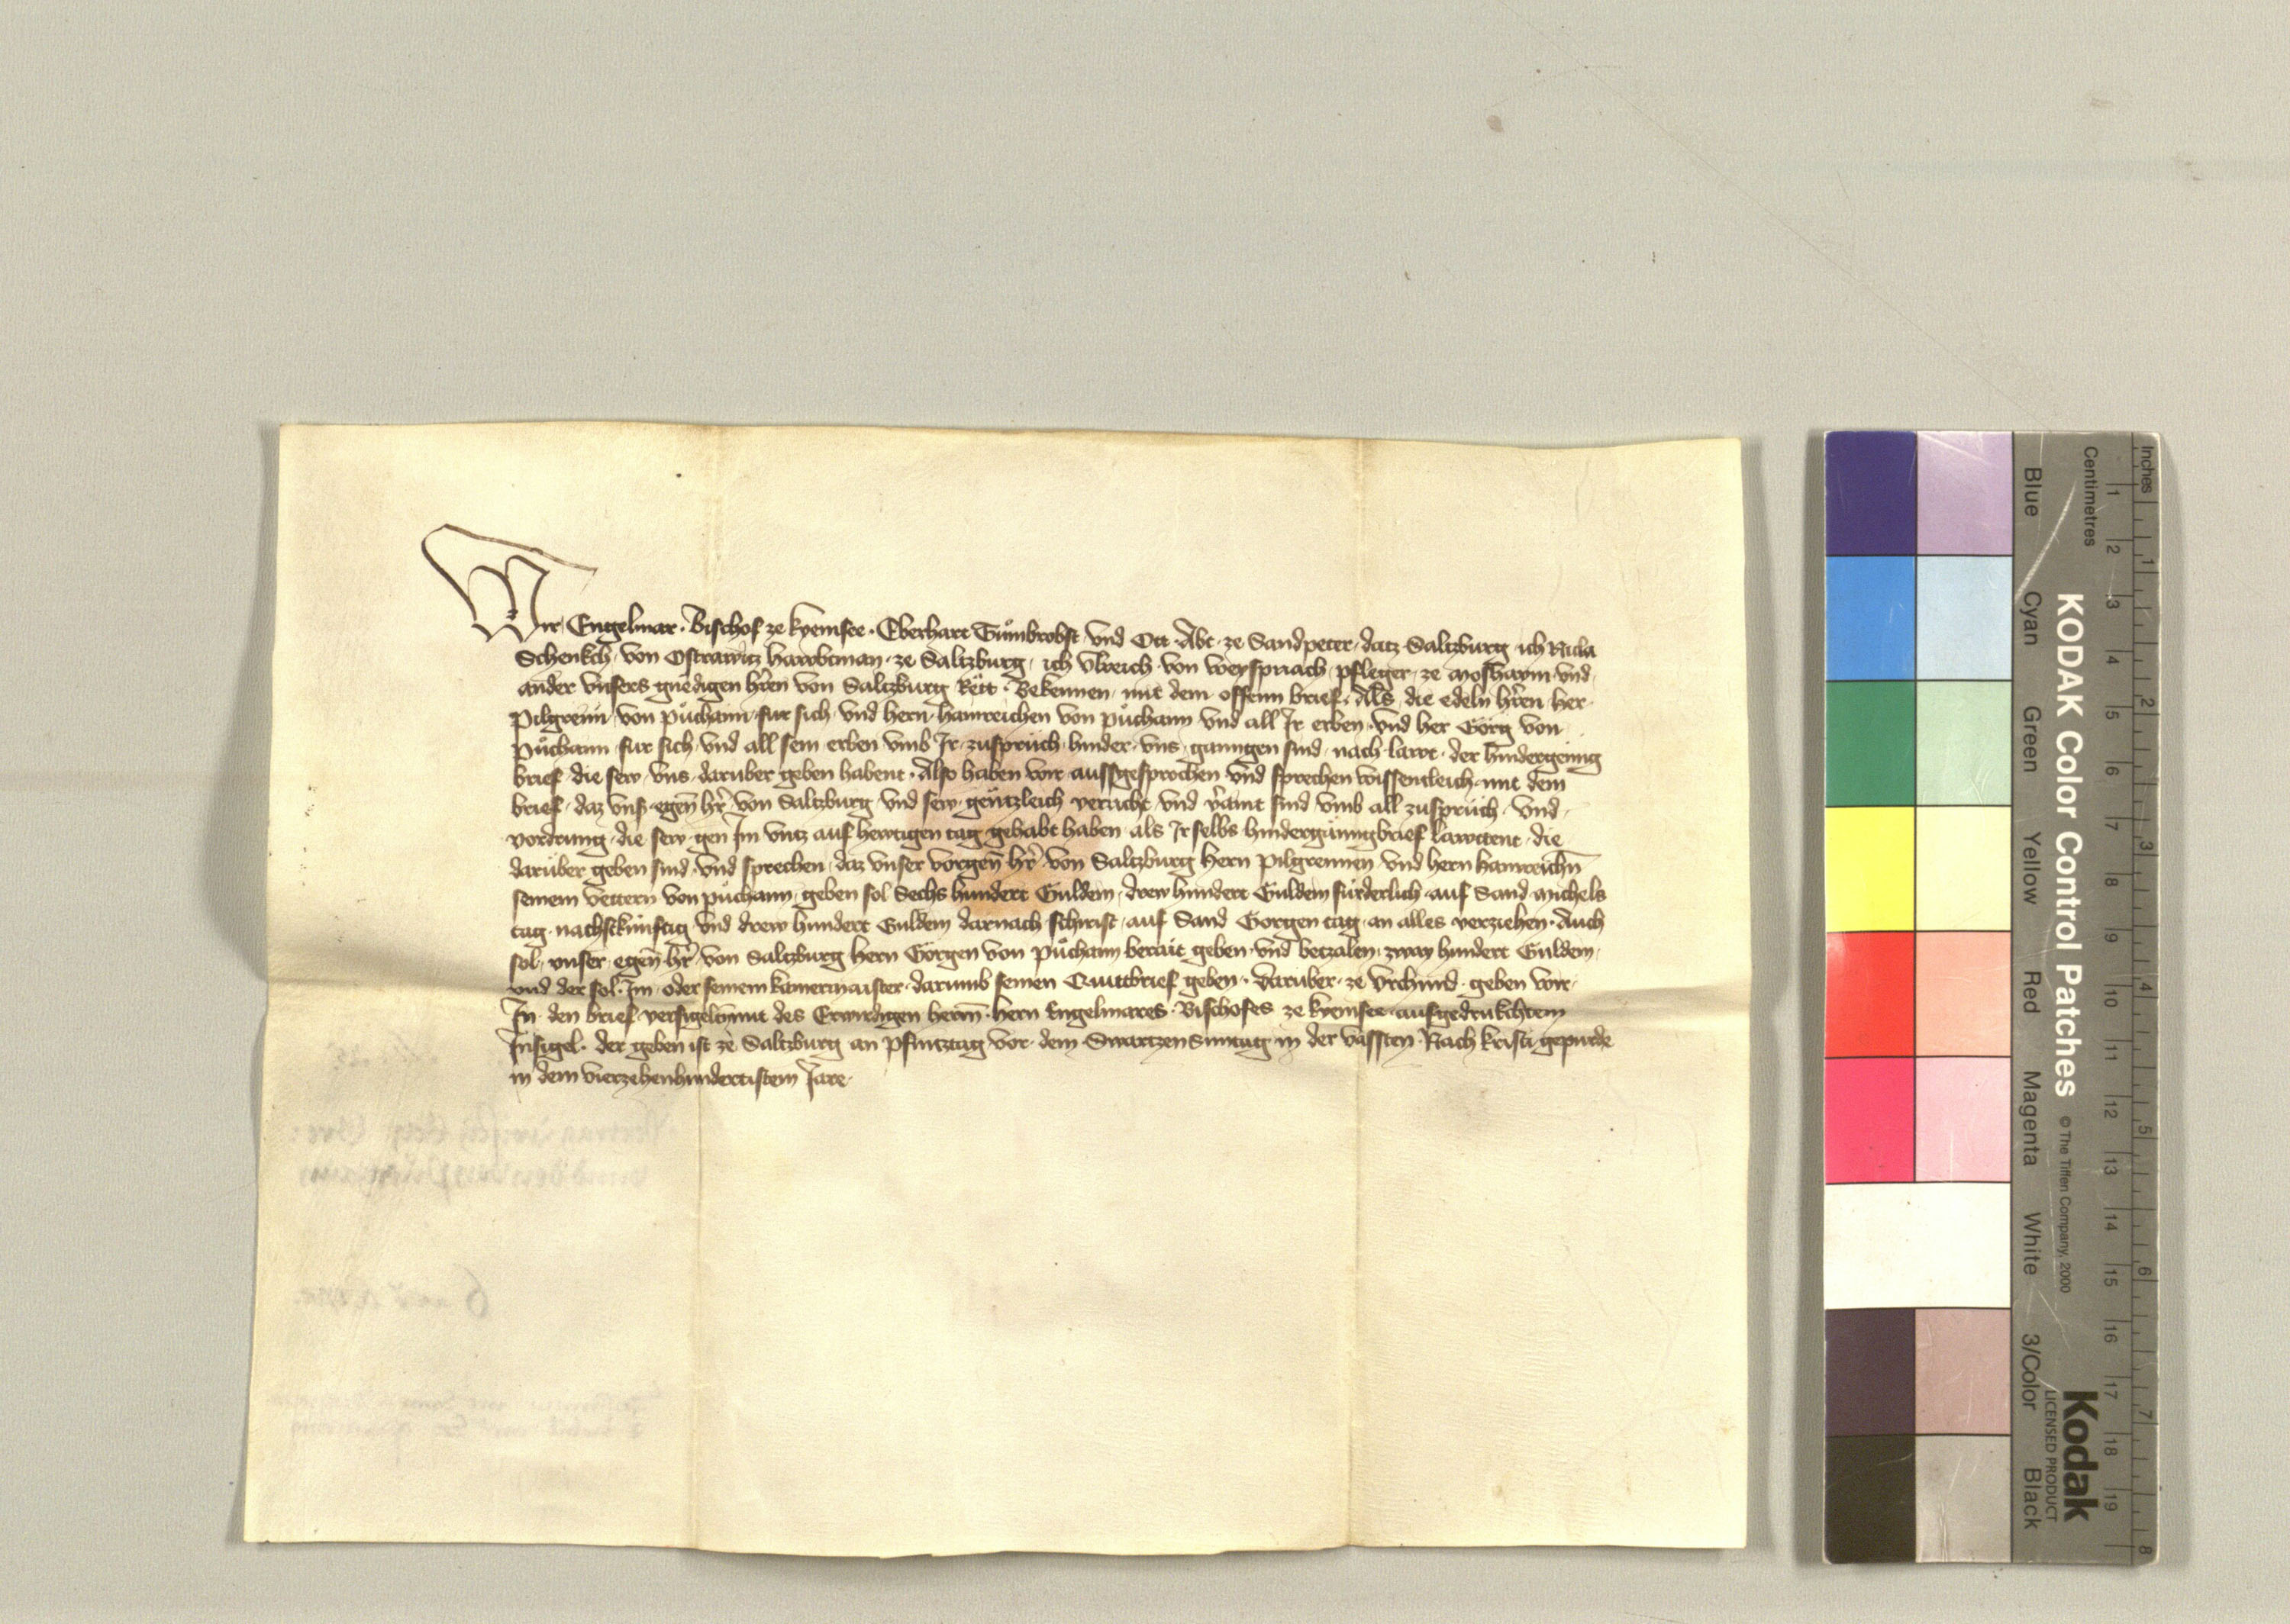 Wir Engelmar · Bischof ze kyemsee · Eberhart Tůmbrobst und Ott · Abt · ze Sandpeter · datz Saltzburg · ich Nicla
Schenkch · von Ostrawitz hawbtman · ze Saltzburg · ich Ulreich von Weyspriach · pfleger · ze Mosharm · und ·
ander unsers gnëdigen hr̃en von Saltzburg Rëtt · Bekennen · mit dem offenn brief · Als die edeln hr̃en her ·
Pilgreim · von půchaim · fur sich · und hern · hainreichen von půchaim und all Ir erben · und her Görg von
Půchaim · fur sich · und all sein erben umb Ir · zuspruch · hinder · uns · gangen sind · nach lawt · der hindergeng
brief · die sew · uns · daruber geben habent · Also haben wir aussgesprochen und sprechen wissentleich · mit dem
brief · daz uns · egen̄ hr̃ · von Saltzburg und sew · gëntzleich verricht und v̾aint sind umb all zuspruch · und ·
vordrung · die sew · gen Im untz auf hewtigen tag gehabt haben · als Ir selbs hindergangbrief lawttent · die
daruber geben sind · und sprechen · daz unser vorgen̄ hr̃ · von Saltzburg hern Pilgreimen und hern hainreichn̄
seinem vettern von půchaim · geben sol Sechs hundert Guldein · drew hundert Guldein fürderlich · auf Sand Michels
tag · nachstkünftig und drew hundert Guldein darnach schirist · auf Sand Gorgen tag · an alles verziehen · Auch
sol · unser · egen̄ hr̃ · von Saltzburg hern Görgen von Půchaim berait geben · und betzalen · zway hundert Guldein ·
und der sol · Im · oder seinem kamermaister · darumb seinen Quittbrief geben · Daruber · ze Urchund · geben wir ·
In den brief · versigelten mit des Erwirdigen herrn · hern Engelmares · Bischofes ze kyemsee · aufgedrukchtem
Insigel · der geben ist ze Saltzburg an Pfintztag vor · dem Swartzen Sunntag in der vassten · Nach kristi gepurde
in dem vierzehenhundertistem Jare ·
KODAK Color Control Patches
© The Tiffen Company, 2000
Kodak
LICENSED PRODUCT
Inches
Centimetres
Blue Cyan Green Yellow Red Magenta White 3/Color Black
1 2 3 4 5 6 7 8 9 10 11 12 13 14 15 16 17 18 19
1 2 3 4 5 6 7 8